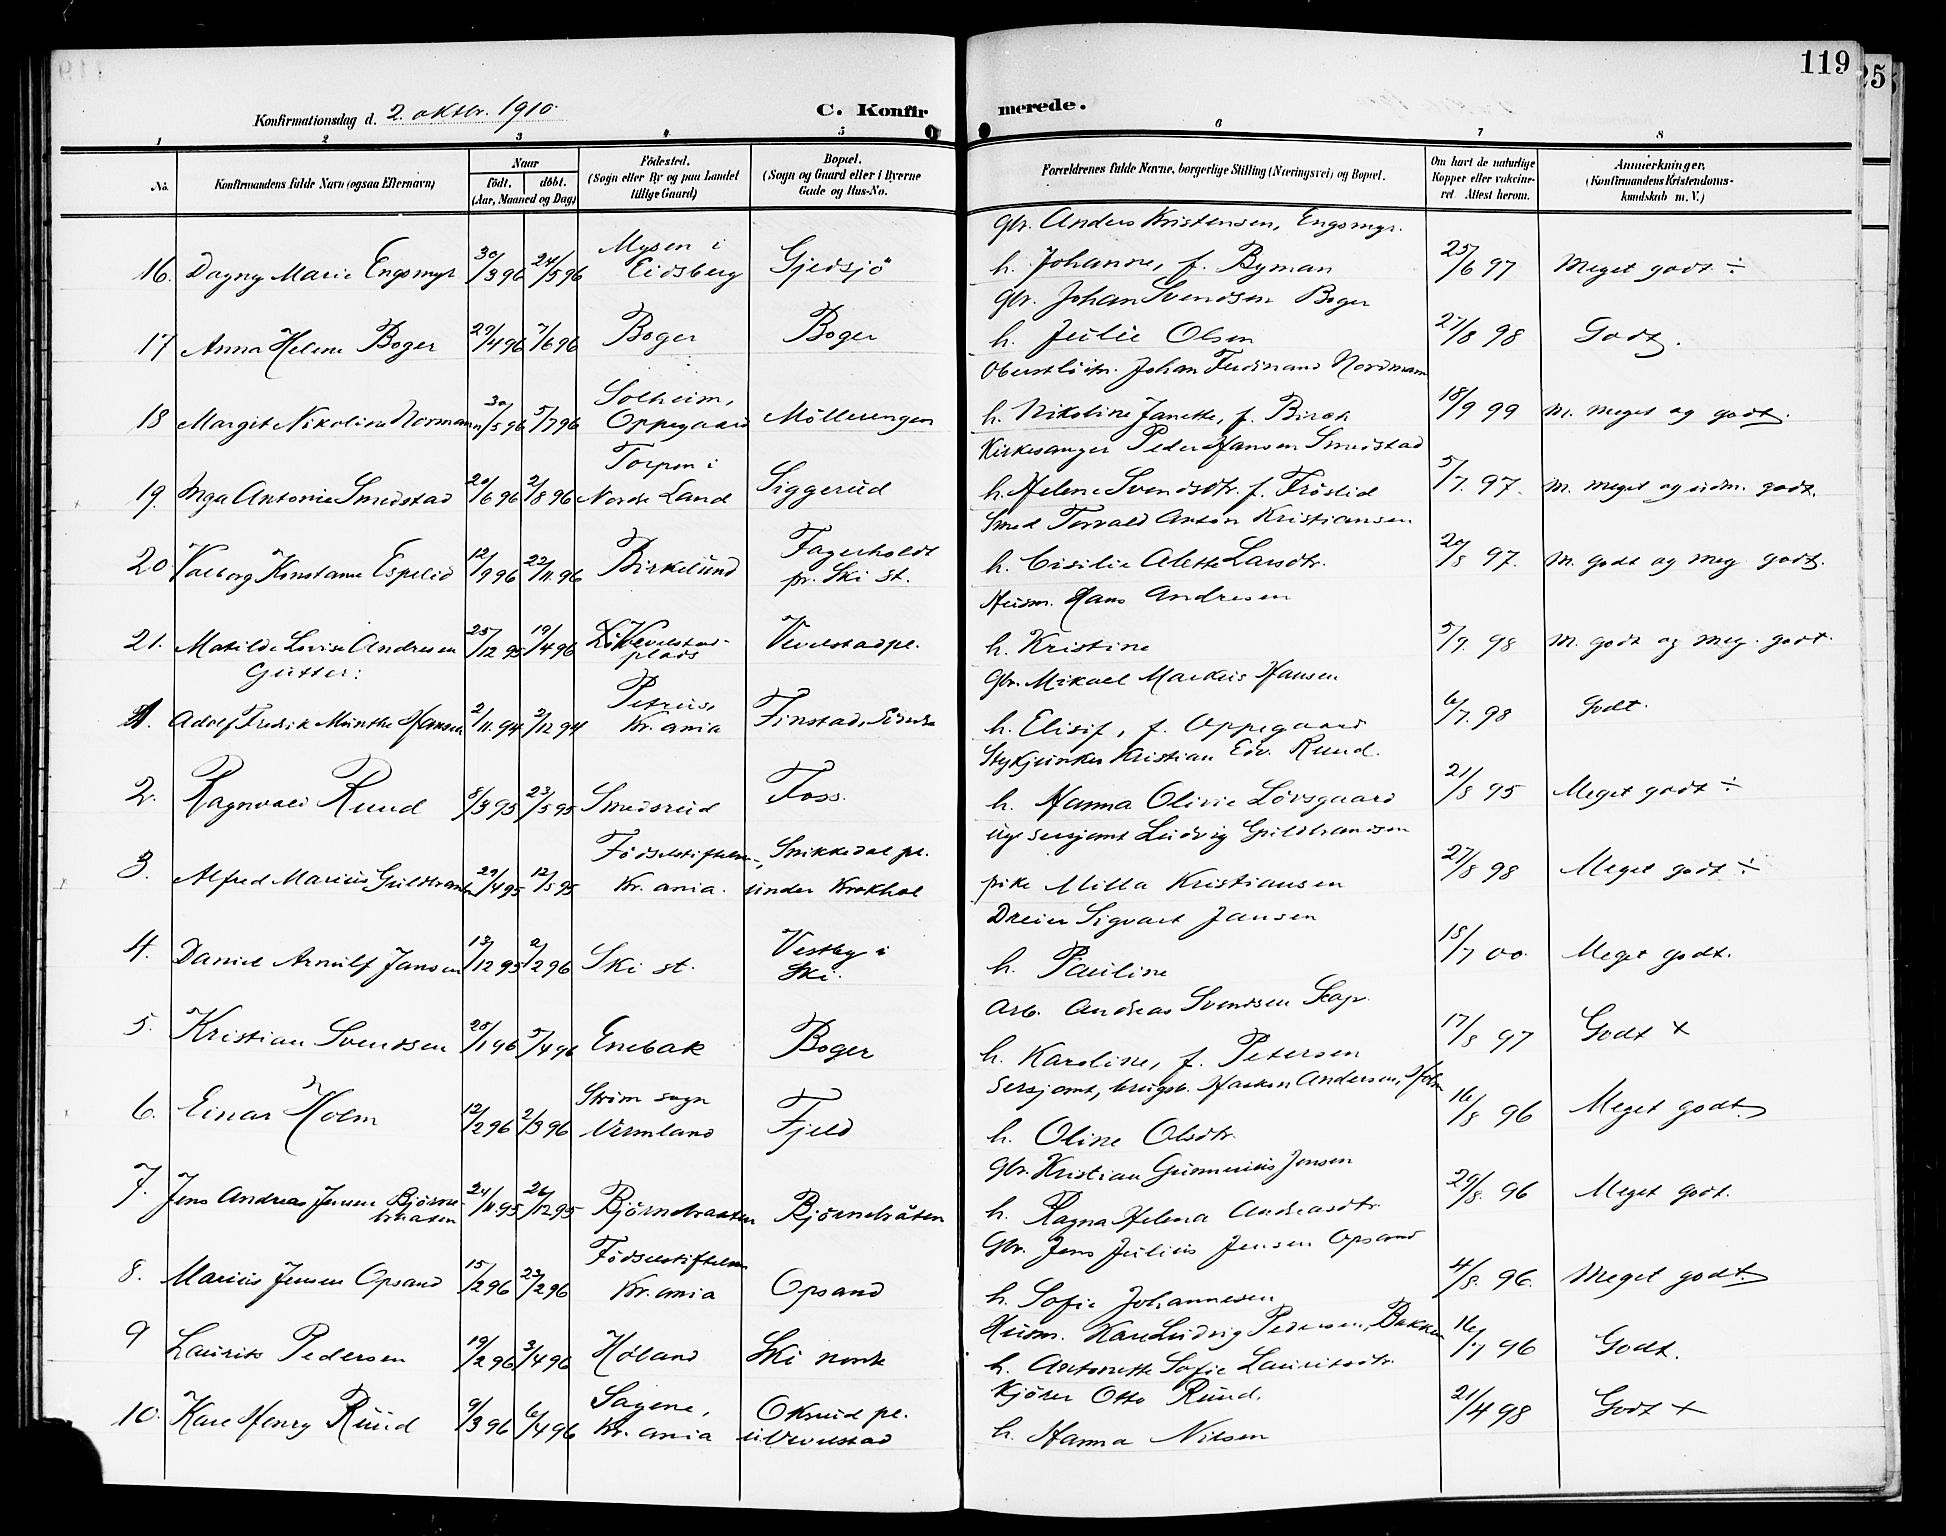 119
25
Konfirmationsdag d. 2. oktbr. 1910.
C. Konfirmerede.
1 2 3 4 5 6 7 8
No.
Konfirmandens fulde Navn (ogsaa Efternavn)
Naar
födt. döbt.
(Aar, Maaned og Dag)
Födested.
(Sogn eller By og paa Landet
tillige Gaard)
Bopæl.
(Sogn og Gaard eller i Byerne
Gade og Hus-No.
Forældrenes fulde Navne, borgerlige Stilling (Næringsvei) og Bopæl.
Om havt de naturlige
Kopper eller vakcine-
ret Attest herom.
Anmærkninger.
(Konfirmandens Kristendoms-
kundskab m. V.)
16. Dagny Marie Engsmyr 30/3 96 24/5 96 Mysen i
Eidsberg Gjedsjö
Gbr. Anders Kristensen, Engsmyr.
h. Johanne, f. Byman 25/6 97 Meget godt ÷
17 Anna Helene Boger 29/4 96 7/6 96 Boger Boger
Gbr. Johan Svendsen Boger
h. Julie Olsen 27/8 98 Godt.
18 Margit Nikoline Normann 30/5 96 5/7 96 Solheim,
Oppegaard Möllerengen
Oberstlöitn. Johan Ferdinand Nordmann
h. Nikoline Janette, f. Birch 18/9 99 M. meget og godt.
19. Inga Antonie Smedstad 20/6 96 2/8 96 Torpen i
Nordre Land Siggerud
Kirkesanger Peder Hansen Smedstad
h. Helene Svendsdtr. f. Fröslid 5/7. 97. M. meget og udm. godt.
20 Valborg Konstanse Espelid 12/9 96 22/11. 96 Birkelund Fagerholdt
pr. Ski st.
Smed Torvald Anton Kristiansen
h. Cisilie Alette Larsdtr. 20/8 97. M. godt og meg. godt.
21. Matilde Lovise Andresen 25/12 95 19/4 96 Vevelstad-
plads Vevelstadpl.
Husm. Hans Andresen
h. Kristine 5/9. 98 M. godt og meg. godt.
Gutter:
1. Adolf Fredrik Munthe Hansen 2/11. 94 2/12 94 Petrus,
Kr.ania Finstad, Söndre
Gbr. Mikael Markus Hansen
h. Elisif, f. Oppegaard 6/7. 98 Godt.
2. Ragnvald Ruud 8/3 95 23/5 95 Smedsrud Foss.
Stykjunker Kristian Edv. Ruud.
h. Hanna Olivie Lövsgaard 21/8 95 Meget godt ÷
3. Alfred Marius Guldbrandsen 29/4 95 12/5 95 Födselstiftelsen,
Kr.ania. Snikkedal pl.
under Krokhol
Ug. sersjant Ludvig Guldbrandsen
pike Milla Kristiansen 27/8 98 Meget godt ÷
4. Daniel Arnulf Jansen 13/12 95 2/2 96 Ski st. Vestby i
Ski.
Dreier Sigvart Jansen
h. Pauline 18/7 00. Meget godt.
5. Kristian Svendsen 25/1 96 5/4 96 Enebak Boger
Arb. Andreas Svendsen
h. Karoline, f. Petersen 17/8 97 Godt +
6. Einar Holm 12/2 96 2/3 96 sogn
Vermland Fjeld
Sersjant, brugsb. Haakon Andersen, Holm
h. Oline Olsdtr. 16/8 96 Meget godt.
7. Jens Andreas Jensen Björne-
braaten 24/11. 95 26/12 95 Björnebraaten Björnebråten
Gbr. Kristian Gunnerius Jensen
h. Ragna Helena Andreasdtr. 20/8. 96 Meget godt.
8. Marius Jensen Opsand 15/2 96 23/2 96 Födselsstiftelsen
Kr.ania Opsand
Gbr. Jens Julius Jensen Opsand
h. Sofie Johannesen 4/8. 96. Meget godt.
9 Laurits Pedersen 19/2 96 3/4 96 Höland Ski nordre
Husm. Karl Ludvig Pedersen, Bakken
h. Antonette Sofie Lauritsdtr. 16/7 96 Godt.
10. Kare Henry Ruud 9/3 96 6/4 96 Sagene,
Kr.ania Oksrud pl.
u. Vevelstad
Kjörer Otto Ruud.
h. Hanna Nilsen 21/4 98 Godt +